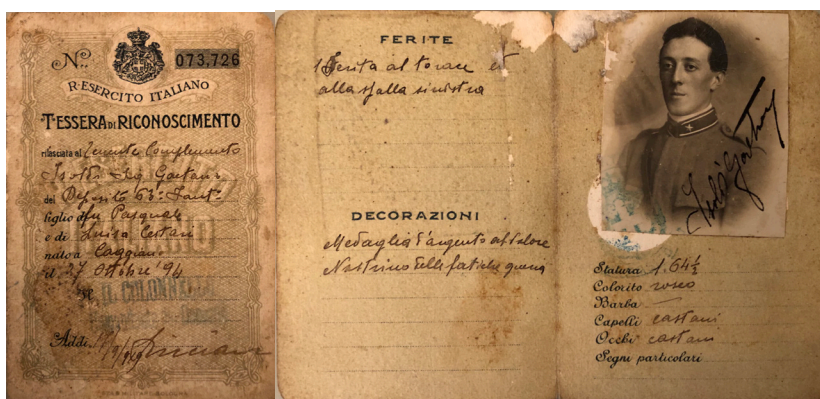 Nº. 073,726
R. ESERCITO ITALIANO
TESSERA DI RICONOSCIMENTO
rilasciata al Tenente Complemento
Isoldi Sig Gaetano
del Deposito 63º Fant.
figlio di fu Pasquale
e di Luisa Cestari
nato a Caggiano
il 27 Ottobre 94
IL COLONNELLO
Addì
FERITE
1 Ferita al torace et
alla spalla sinistra
DECORAZIONI
Medaglia d'argento al valore
Nastrino delle fatiche guerra
Statura 1.64½
Colorito roseo
Barba —
Capelli castani
Occhi castani
Segni particolari